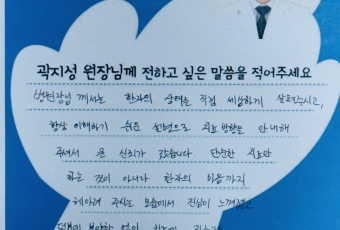 곽지성 원장님께 전하고 싶은 말씀을 적어주세요
병원장님 께서는 환자의 상태를 직접 세심하게 살펴주시고,
항상 이해하기 쉬운 설명으로 치료 방향을 안내해
주셔서 큰 신뢰가 갔습니다. 단순한 치료만
하는 것이 아니라 환자의 마음까지
헤아려 주시는 모습에서 진심이 느껴졌고
덕분에 불안함 없이